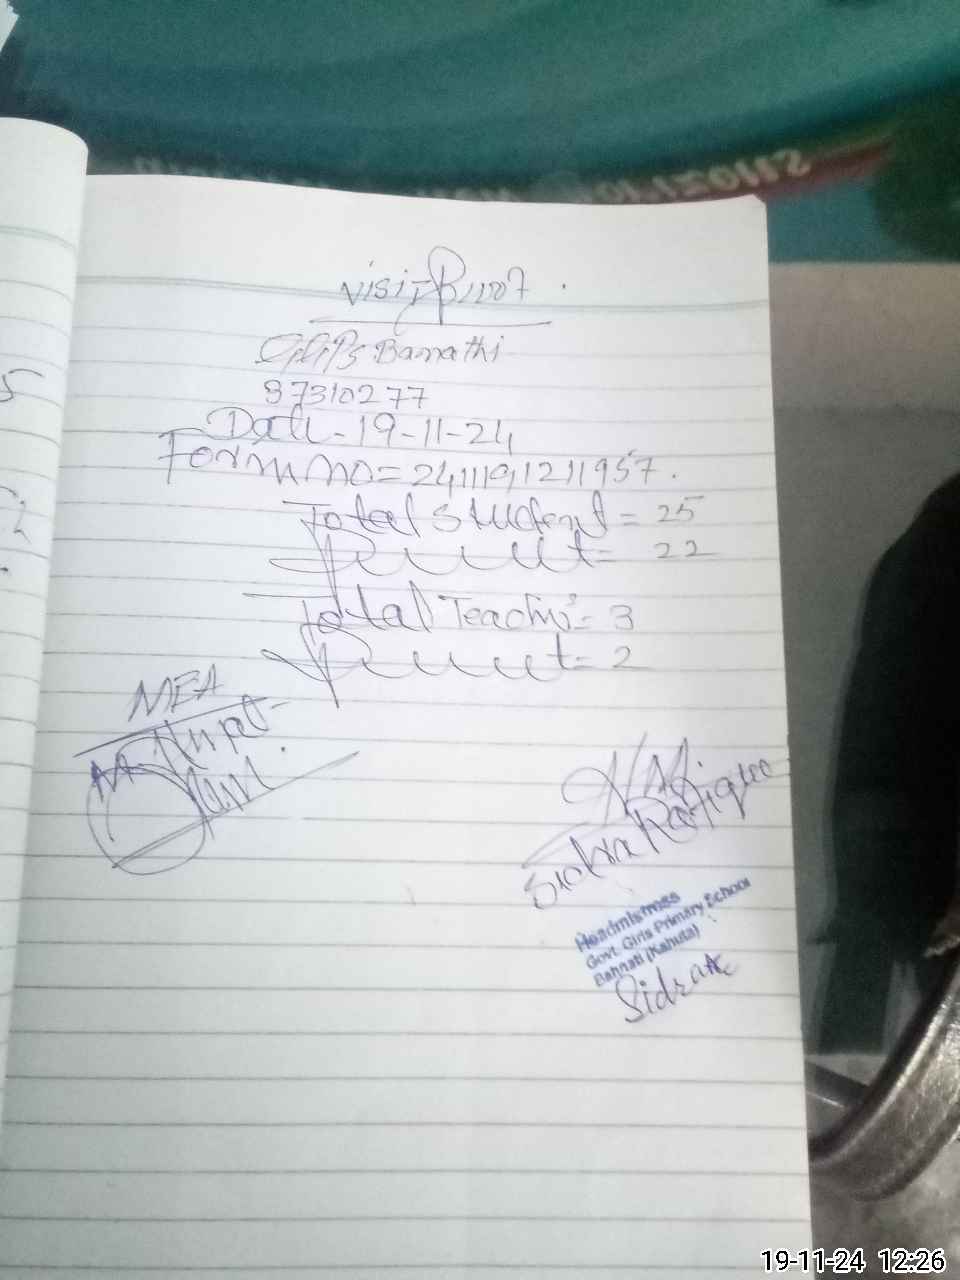 Visit Proof
GGPS Banathi
37310277
Date - 19-11-24
Form no = 241119,1211957.
Total Student = 25
Present = 22
Total Teacher = 3
Present = 2
MEA
Sidra Rafique
Headmistress
Govt. Girls Primary School
Bahnati (Kahuta)
Sidra
19-11-24 12:26